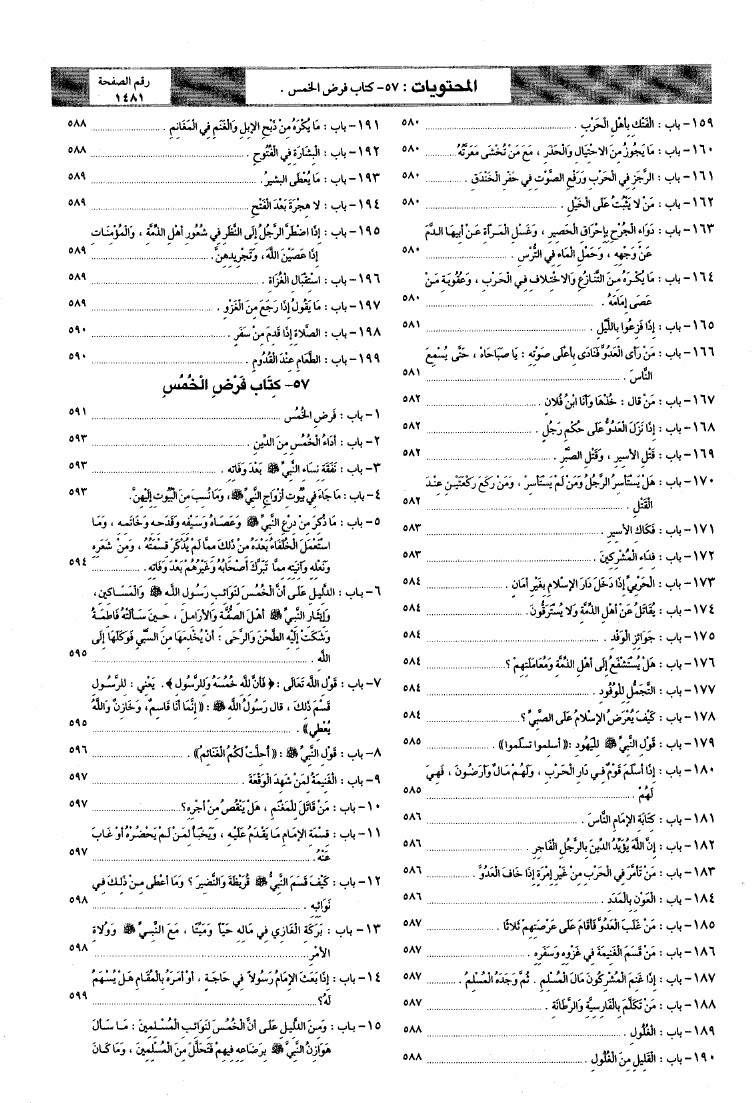 المحتويات : ٥٧- كتاب فرض الخمس .
رقم الصفحة
١٤٨١
١٥٩- باب : الفَتْك بِأَهْلِ الْحَرْبِ . ٥٨٠
١٦٠- باب : مَا يَجُوزُ مِنَ الاحْتِيَالِ وَالْحَذَرِ ، مَعَ مَنْ تُخْشَى مَعَرَّتُهُ ٥٨٠
١٦١- باب : الرَّجَزِ فِي الْحَرْبِ وَرَفْعِ الصَّوْتِ فِي حَفْرِ الْخَنْدَقِ . ٥٨٠
١٦٢- باب : مَنْ لا يَثْبُتُ عَلَى الْخَيْلِ . ٥٨٠
١٦٣- باب : دَوَاءِ الْجُرْحِ بِإِحْرَاقِ الْحَصِيرِ ، وَغَسْلِ الْمَرْأَةِ عَنْ أَبِيهَا الدَّمَ
عَنْ وَجْهِهِ ، وَحَمْلِ الْمَاءِ فِي التُّرْسِ . ٥٨٠
١٦٤- باب : مَا يُكْرَهُ مِنَ التَّنَازُعِ وَالاخْتِلافِ فِي الْحَرْبِ ، وَعُقُوبَةِ مَنْ
عَصَى إِمَامَهُ . ٥٨٠
١٦٥- باب : إِذَا فَزِعُوا بِاللَّيْلِ . ٥٨١
١٦٦- باب : مَنْ رَأَى الْعَدُوَّ فَنَادَى بِأَعْلَى صَوْتِهِ : يَا صَبَاحَاهْ ، حَتَّى يُسْمِعَ
النَّاسَ . ٥٨١
١٦٧- باب : مَنْ قال : خُذْهَا وَأَنَا ابْنُ فُلانٍ ٥٨٢
١٦٨- باب : إِذَا نَزَلَ الْعَدُوُّ عَلَى حُكْمِ رَجُلٍ . ٥٨٢
١٦٩- باب : قَتْلِ الأَسِيرِ ، وَقَتْلِ الصَّبْرِ . ٥٨٢
١٧٠- باب : هَلْ يَسْتَأْسِرُ الرَّجُلُ وَمَنْ لَمْ يَسْتَأْسِرْ ، وَمَنْ رَكَعَ رَكْعَتَيْنِ عِنْدَ
الْقَتْلِ . ٥٨٢
١٧١- باب : فَكَاكِ الأَسِيرِ . ٥٨٣
١٧٢- باب : فِدَاءِ الْمُشْرِكِينَ ٥٨٣
١٧٣- باب : الْحَرْبِيِّ إِذَا دَخَلَ دَارَ الإِسْلامِ بِغَيْرِ أَمَانٍ . ٥٨٤
١٧٤- باب : يُقَاتَلُ عَنْ أَهْلِ الذِّمَّةِ وَلا يُسْتَرَقُّونَ . ٥٨٤
١٧٥- باب : جَوَائِزِ الْوَفْدِ . ٥٨٤
١٧٦- باب : هَلْ يُسْتَشْفَعُ إِلَى أَهْلِ الذِّمَّةِ وَمُعَامَلَتِهِمْ ؟ ٥٨٤
١٧٧- باب : التَّجَمُّلِ لِلْوُفُودِ . ٥٨٤
١٧٨- باب : كَيْفَ يُعْرَضُ الإِسْلامُ عَلَى الصَّبِيِّ ؟ ٥٨٤
١٧٩- باب : قَوْلِ النَّبِيِّ ﷺ لِلْيَهُودِ :(( أَسلموا تسلموا)) . ٥٨٥
١٨٠- باب : إِذَا أَسْلَمَ قَوْمٌ فِي دَارِ الْحَرْبِ ، وَلَهُمْ مَالٌ وَأَرَضُونَ ، فَهِيَ
لَهُمْ ٥٨٥
١٨١- باب : كِتَابَةِ الإِمَامِ النَّاسَ . ٥٨٦
١٨٢- باب : إِنَّ اللَّهَ يُؤَيِّدُ الدِّينَ بِالرَّجُلِ الْفَاجِرِ . ٥٨٦
١٨٣- باب : مَنْ تَأَمَّرَ فِي الْحَرْبِ مِنْ غَيْرِ إِمْرَةٍ إِذَا خَافَ الْعَدُوَّ . ٥٨٦
١٨٤- باب : الْعَوْنِ بِالْمَدَدِ . ٥٨٦
١٨٥- باب : مَنْ غَلَبَ الْعَدُوَّ فَأَقَامَ عَلَى عَرْصَتِهِمْ ثَلاثًا . ٥٨٧
١٨٦- باب : مَنْ قَسَمَ الْغَنِيمَةَ فِي غَزْوِهِ وَسَفَرِهِ . ٥٨٧
١٨٧- باب : إِذَا غَنِمَ الْمُشْرِكُونَ مَالَ الْمُسْلِمِ . ثُمَّ وَجَدَهُ الْمُسْلِمُ . ٥٨٧
١٨٨- باب : مَنْ تَكَلَّمَ بِالْفَارِسِيَّةِ وَالرَّطَانَةِ . ٥٨٧
١٨٩- باب : الْغُلُولِ . ٥٨٨
١٩٠- باب : الْقَلِيلِ مِنَ الْغُلُولِ . ٥٨٨
١٩١- باب : مَا يُكْرَهُ مِنْ ذَبْحِ الإِبِلِ وَالْغَنَمِ فِي الْمَغَانِمِ . ٥٨٨
١٩٢- باب : الْبِشَارَةِ فِي الْفُتُوحِ . ٥٨٨
١٩٣- باب : مَا يُعْطَى الْبَشِيرُ . ٥٨٩
١٩٤- باب : لا هِجْرَةَ بَعْدَ الْفَتْحِ ٥٨٩
١٩٥- باب : إِذَا اضْطَرَّ الرَّجُلُ إِلَى النَّظَرِ فِي شُعُورِ أَهْلِ الذِّمَّةِ ، وَالْمُؤْمِنَاتِ
إِذَا عَصَيْنَ اللَّهَ، وَتَجْرِيدِهِنَّ . ٥٨٩
١٩٦- باب : اسْتِقْبَالِ الْغُزَاةِ . ٥٨٩
١٩٧- باب : مَا يَقُولُ إِذَا رَجَعَ مِنَ الْغَزْوِ . ٥٨٩
١٩٨- باب : الصَّلاةِ إِذَا قَدِمَ مِنْ سَفَرٍ . ٥٩٠
١٩٩- باب : الطَّعَامِ عِنْدَ الْقُدُومِ . ٥٩٠
٥٧- كِتَاب فَرْضِ الْخُمُسِ
١- باب : فَرْضِ الْخُمُسِ ٥٩١
٢- باب : أَدَاءُ الْخُمُسِ مِنَ الدِّينِ . ٥٩٣
٣- باب : نَفَقَةِ نِسَاءِ النَّبِيِّ ﷺ بَعْدَ وَفَاتِهِ . ٥٩٣
٤- باب : مَا جَاءَ فِي بُيُوتِ أَزْوَاجِ النَّبِيِّ ﷺ، وَمَا نُسِبَ مِنَ الْبُيُوتِ إِلَيْهِنَّ. ٥٩٣
٥- باب : مَا ذُكِرَ مِنْ دِرْعِ النَّبِيِّ ﷺ وَعَصَاهُ وَسَيْفِهِ وَقَدَحِهِ وَخَاتَمِهِ ، وَمَا
اسْتَعْمَلَ الْخُلَفَاءُ بَعْدَهُ مِنْ ذَلِكَ مِمَّا لَمْ يُذْكَرْ قِسْمَتُهُ ، وَمِنْ شَعَرِهِ
وَنَعْلِهِ وَآنِيَتِهِ مِمَّا تَبَرَّكَ أَصْحَابُهُ وَغَيْرُهُمْ بَعْدَ وَفَاتِهِ . ٥٩٤
٦- باب : الدَّلِيلِ عَلَى أَنَّ الْخُمُسَ لِنَوَائِبِ رَسُولِ اللَّهِ ﷺ وَالْمَسَاكِينِ ،
وَإِيثَارِ النَّبِيِّ ﷺ أَهْلَ الصُّفَّةِ وَالأَرَامِلَ ، حِينَ سَأَلَتْهُ فَاطِمَةُ
وَشَكَتْ إِلَيْهِ الطَّحْنَ وَالرَّحَى : أَنْ يُخْدِمَهَا مِنَ السَّبْيِ فَوَكَلَهَا إِلَى
اللَّهِ . ٥٩٥
٧- باب : قَوْلِ اللَّهِ تَعَالَى :﴿ فَأَنَّ لِلَّهِ خُمُسَهُ وَلِلرَّسُولِ ﴾. يَعْنِي : لِلرَّسُولِ
قَسْمَ ذَلِكَ ، قال رَسُولُ اللَّهِ ﷺ :(( إِنَّمَا أَنَا قَاسِمٌ، وَخَازِنٌ وَاللَّهُ
يُعْطِي)) . ٥٩٥
٨- باب : قَوْلِ النَّبِيِّ ﷺ :(( أُحِلَّتْ لَكُمُ الْغَنَائِمُ)) . ٥٩٦
٩- باب : الْغَنِيمَةُ لِمَنْ شَهِدَ الْوَقْعَةَ . ٥٩٧
١٠- باب : مَنْ قَاتَلَ لِلْمَغْنَمِ ، هَلْ يَنْقُصُ مِنْ أَجْرِهِ؟ ٥٩٧
١١- باب : قِسْمَةِ الإِمَامِ مَا يَقْدَمُ عَلَيْهِ ، وَيَخْبَأُ لِمَنْ لَمْ يَحْضُرْهُ أَوْ غَابَ
عَنْهُ . ٥٩٧
١٢- باب : كَيْفَ قَسَمَ النَّبِيُّ ﷺ قُرَيْظَةَ وَالنَّضِيرَ ؟ وَمَا أَعْطَى مِنْ ذَلِكَ فِي
نَوَائِبِهِ . ٥٩٨
١٣- باب : بَرَكَةِ الْغَازِي فِي مَالِهِ حَيًّا وَمَيِّتًا ، مَعَ النَّبِيِّ ﷺ وَوُلاةِ
الأَمْرِ . ٥٩٨
١٤- باب : إِذَا بَعَثَ الإِمَامُ رَسُولاً فِي حَاجَةٍ ، أَوْ أَمَرَهُ بِالْمُقَامِ هَلْ يُسْهَمُ
لَهُ؟ ٥٩٩
١٥- باب : وَمِنَ الدَّلِيلِ عَلَى أَنَّ الْخُمُسَ لِنَوَائِبِ الْمُسْلِمِينَ : مَا سَأَلَ
هَوَازِنُ النَّبِيَّ ﷺ بِرَضَاعِهِ فِيهِمْ فَتَحَلَّلَ مِنَ الْمُسْلِمِينَ ، وَمَا كَانَ